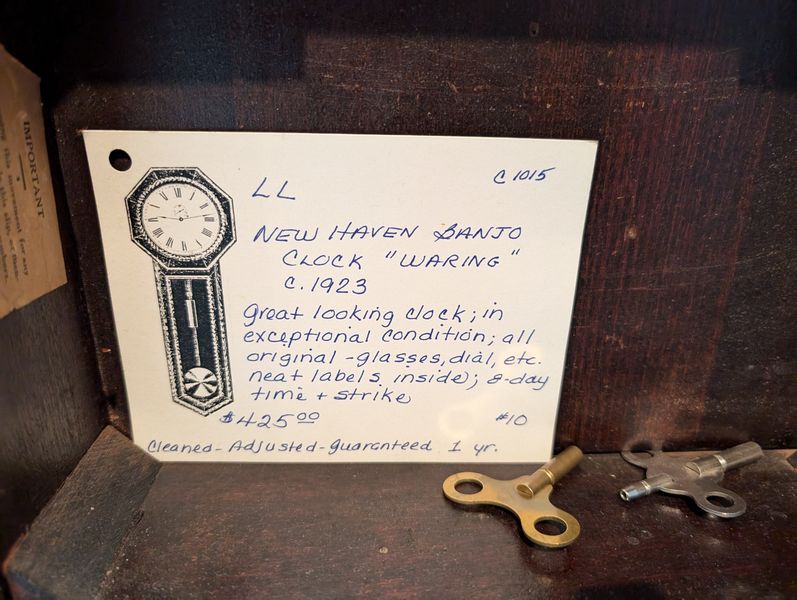 IMPORTANT
this movement for any
LL
C 1015
NEW HAVEN BANJO
CLOCK "WARING"
c. 1923
great looking clock; in
exceptional condition; all
original - glasses, dial, etc.
neat labels inside; 8-day
time + strike
$425.00
#10
Cleaned - Adjusted - guaranteed 1 yr.